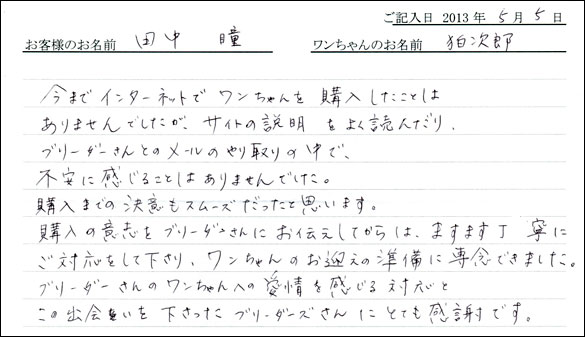 ご記入日 2013年 5月 5日
お客様のお名前 田中 瞳 ワンちゃんのお名前 狛次郎
今までインターネットでワンちゃんを購入したことは
ありませんでしたが、サイトの説明をよく読んだり、
ブリーダーさんとのメールのやり取りの中で、
不安に感じることはありませんでした。
購入までの決意もスムーズだったと思います。
購入の意志をブリーダーさんにお伝えしてからは、ますます丁寧に
ご対応をして下さり、ワンちゃんのお迎えの準備に専念できました。
ブリーダーさんのワンちゃんへの愛情を感じる対応と
この出会いを下さったブリーダーズさんにとても感謝です。